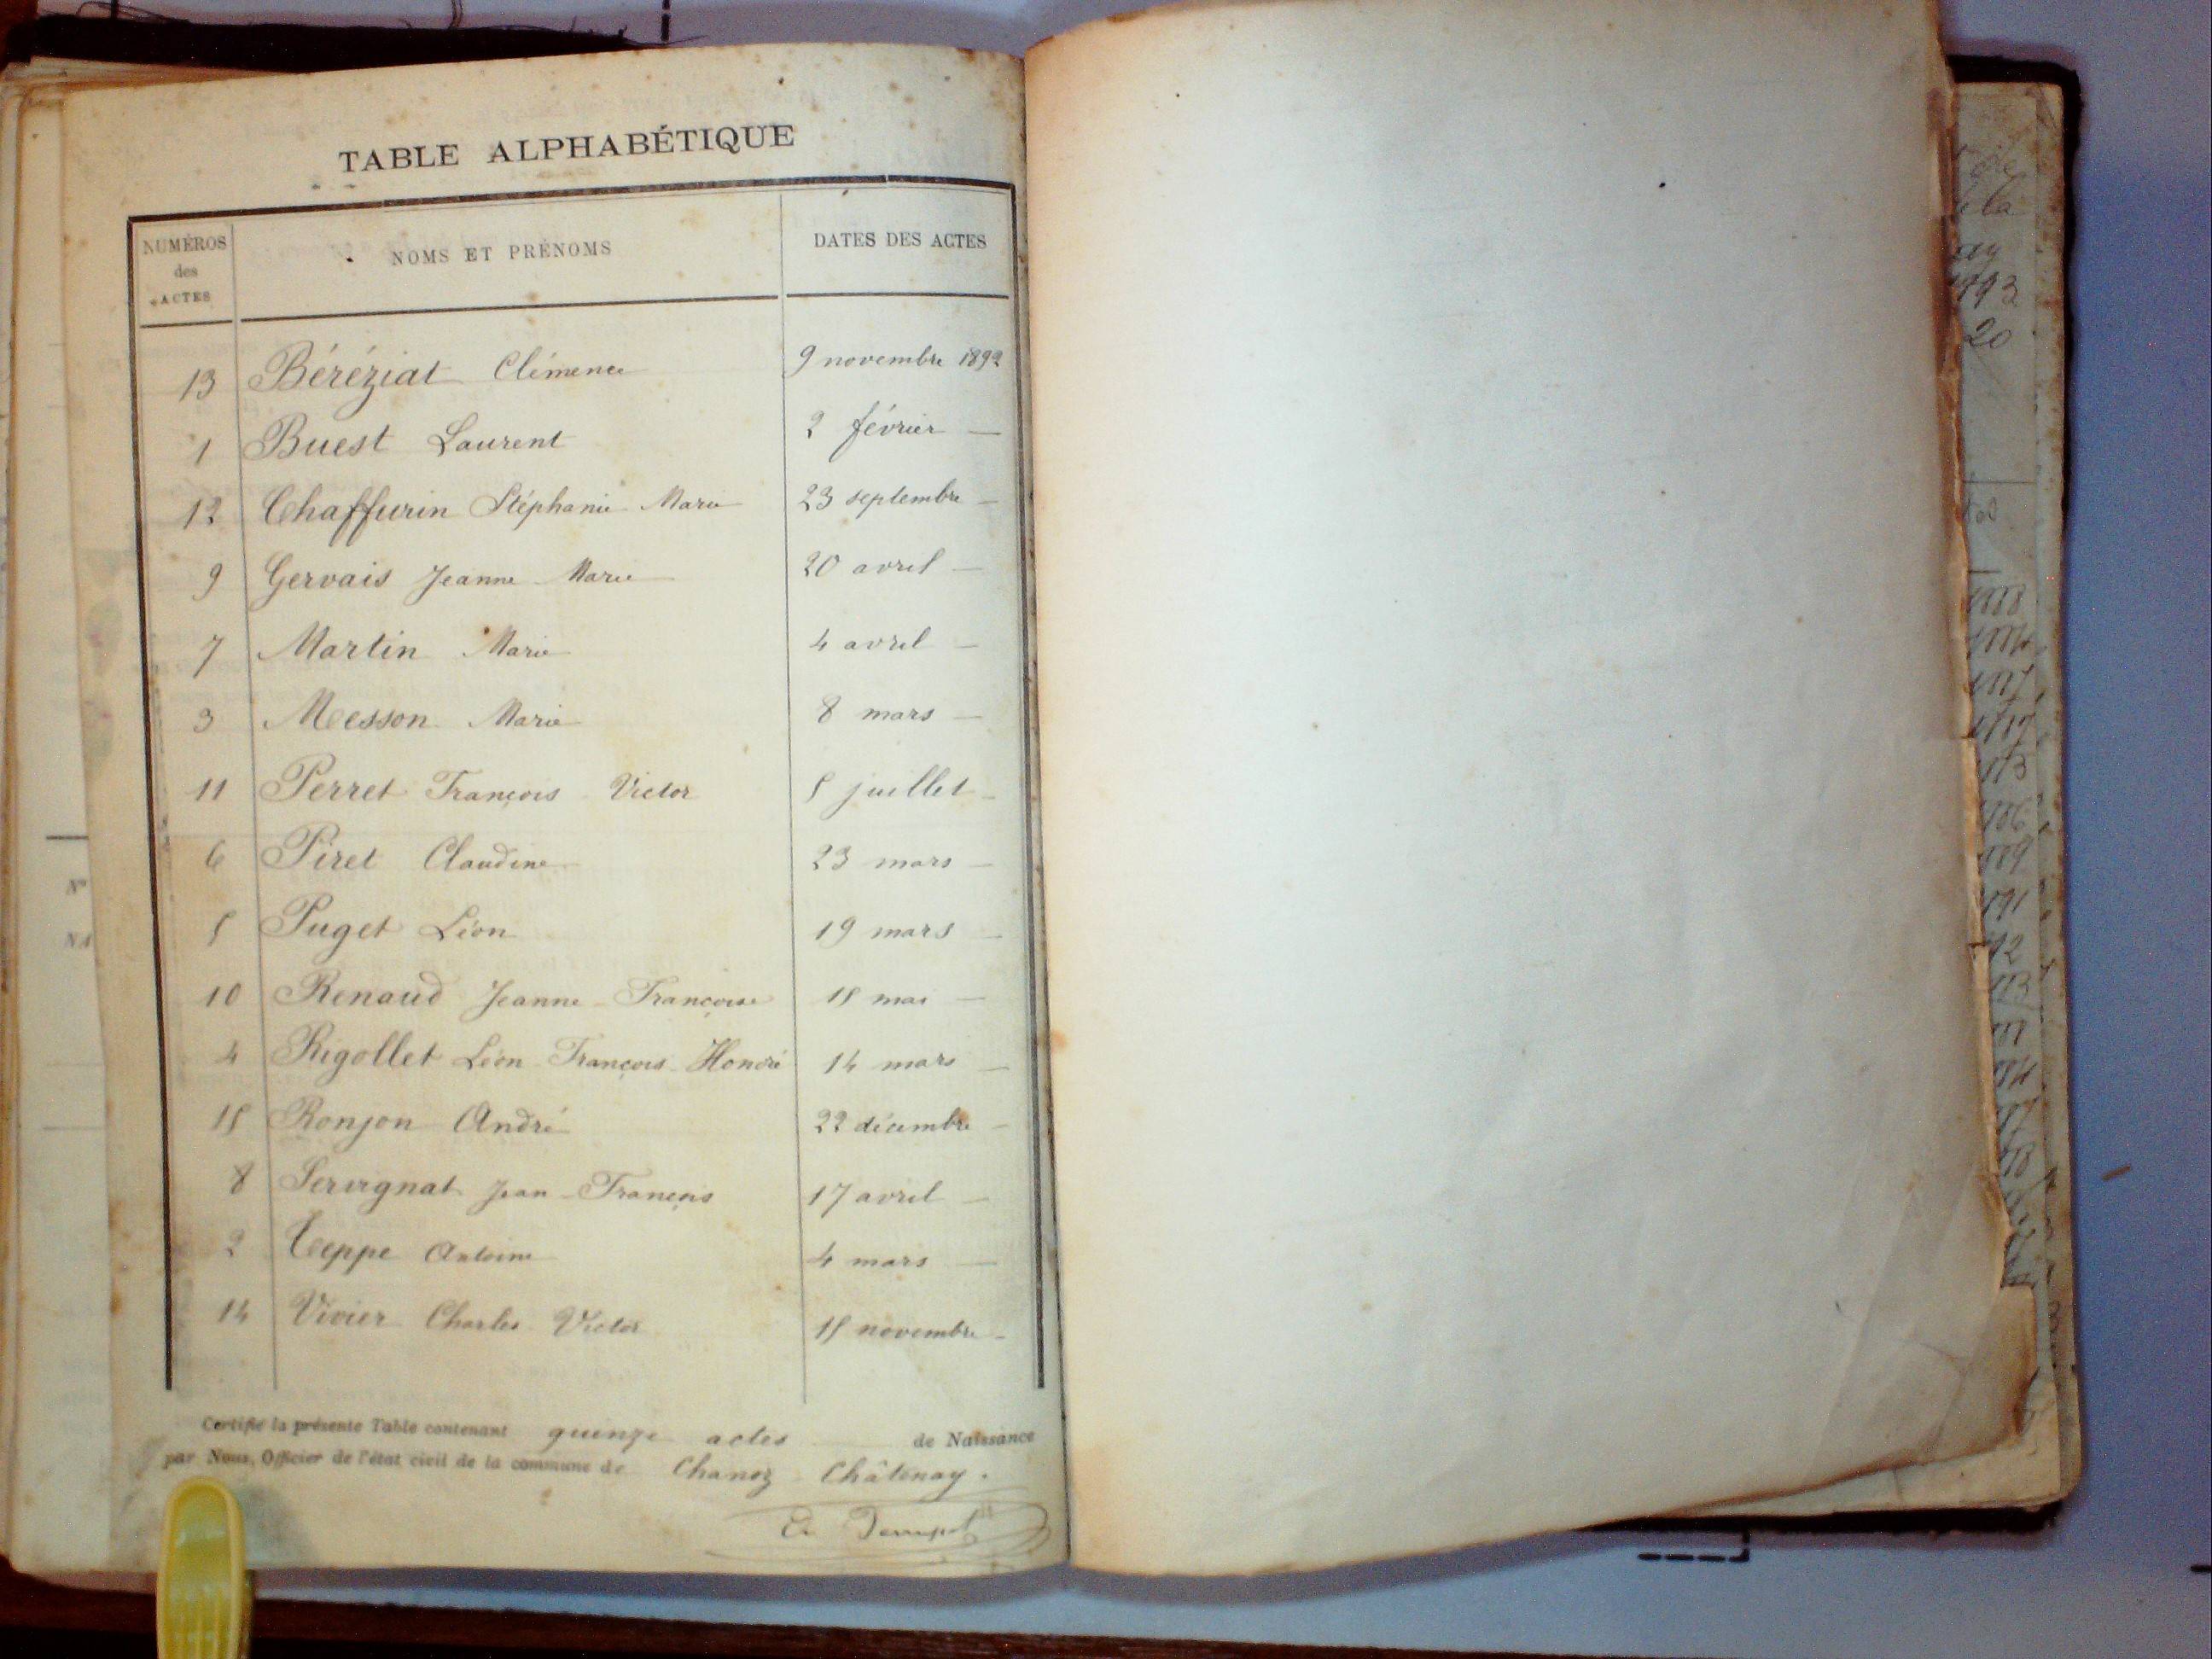 TABLE ALPHABÉTIQUE
NUMÉROS des ACTES NOMS ET PRÉNOMS DATES DES ACTES
13 Béréziat Clémence 9 novembre 1892
1 Buest Laurent 2 février —
12 Chaffurin Stéphanie Marie 23 septembre —
9 Gervais Jeanne Marie 20 avril —
7 Martin Marie 4 avril —
3 Messon Marie 8 mars —
11 Perret François Victor 5 juillet —
6 Piret Claudine 23 mars —
5 Puget Léon 19 mars —
10 Renaud Jeanne Françoise 15 mai —
4 Rigollet Léon François Honoré 14 mars —
15 Ronjon André 22 décembre —
8 Servignat Jean François 17 avril —
2 Teppe Antoine 4 mars —
14 Vivier Charles Victor 15 novembre —
Certifié la présente Table contenant quinze actes de Naissance
par Nous, Officier de l'état civil de la commune de Chanoz Châtenay.